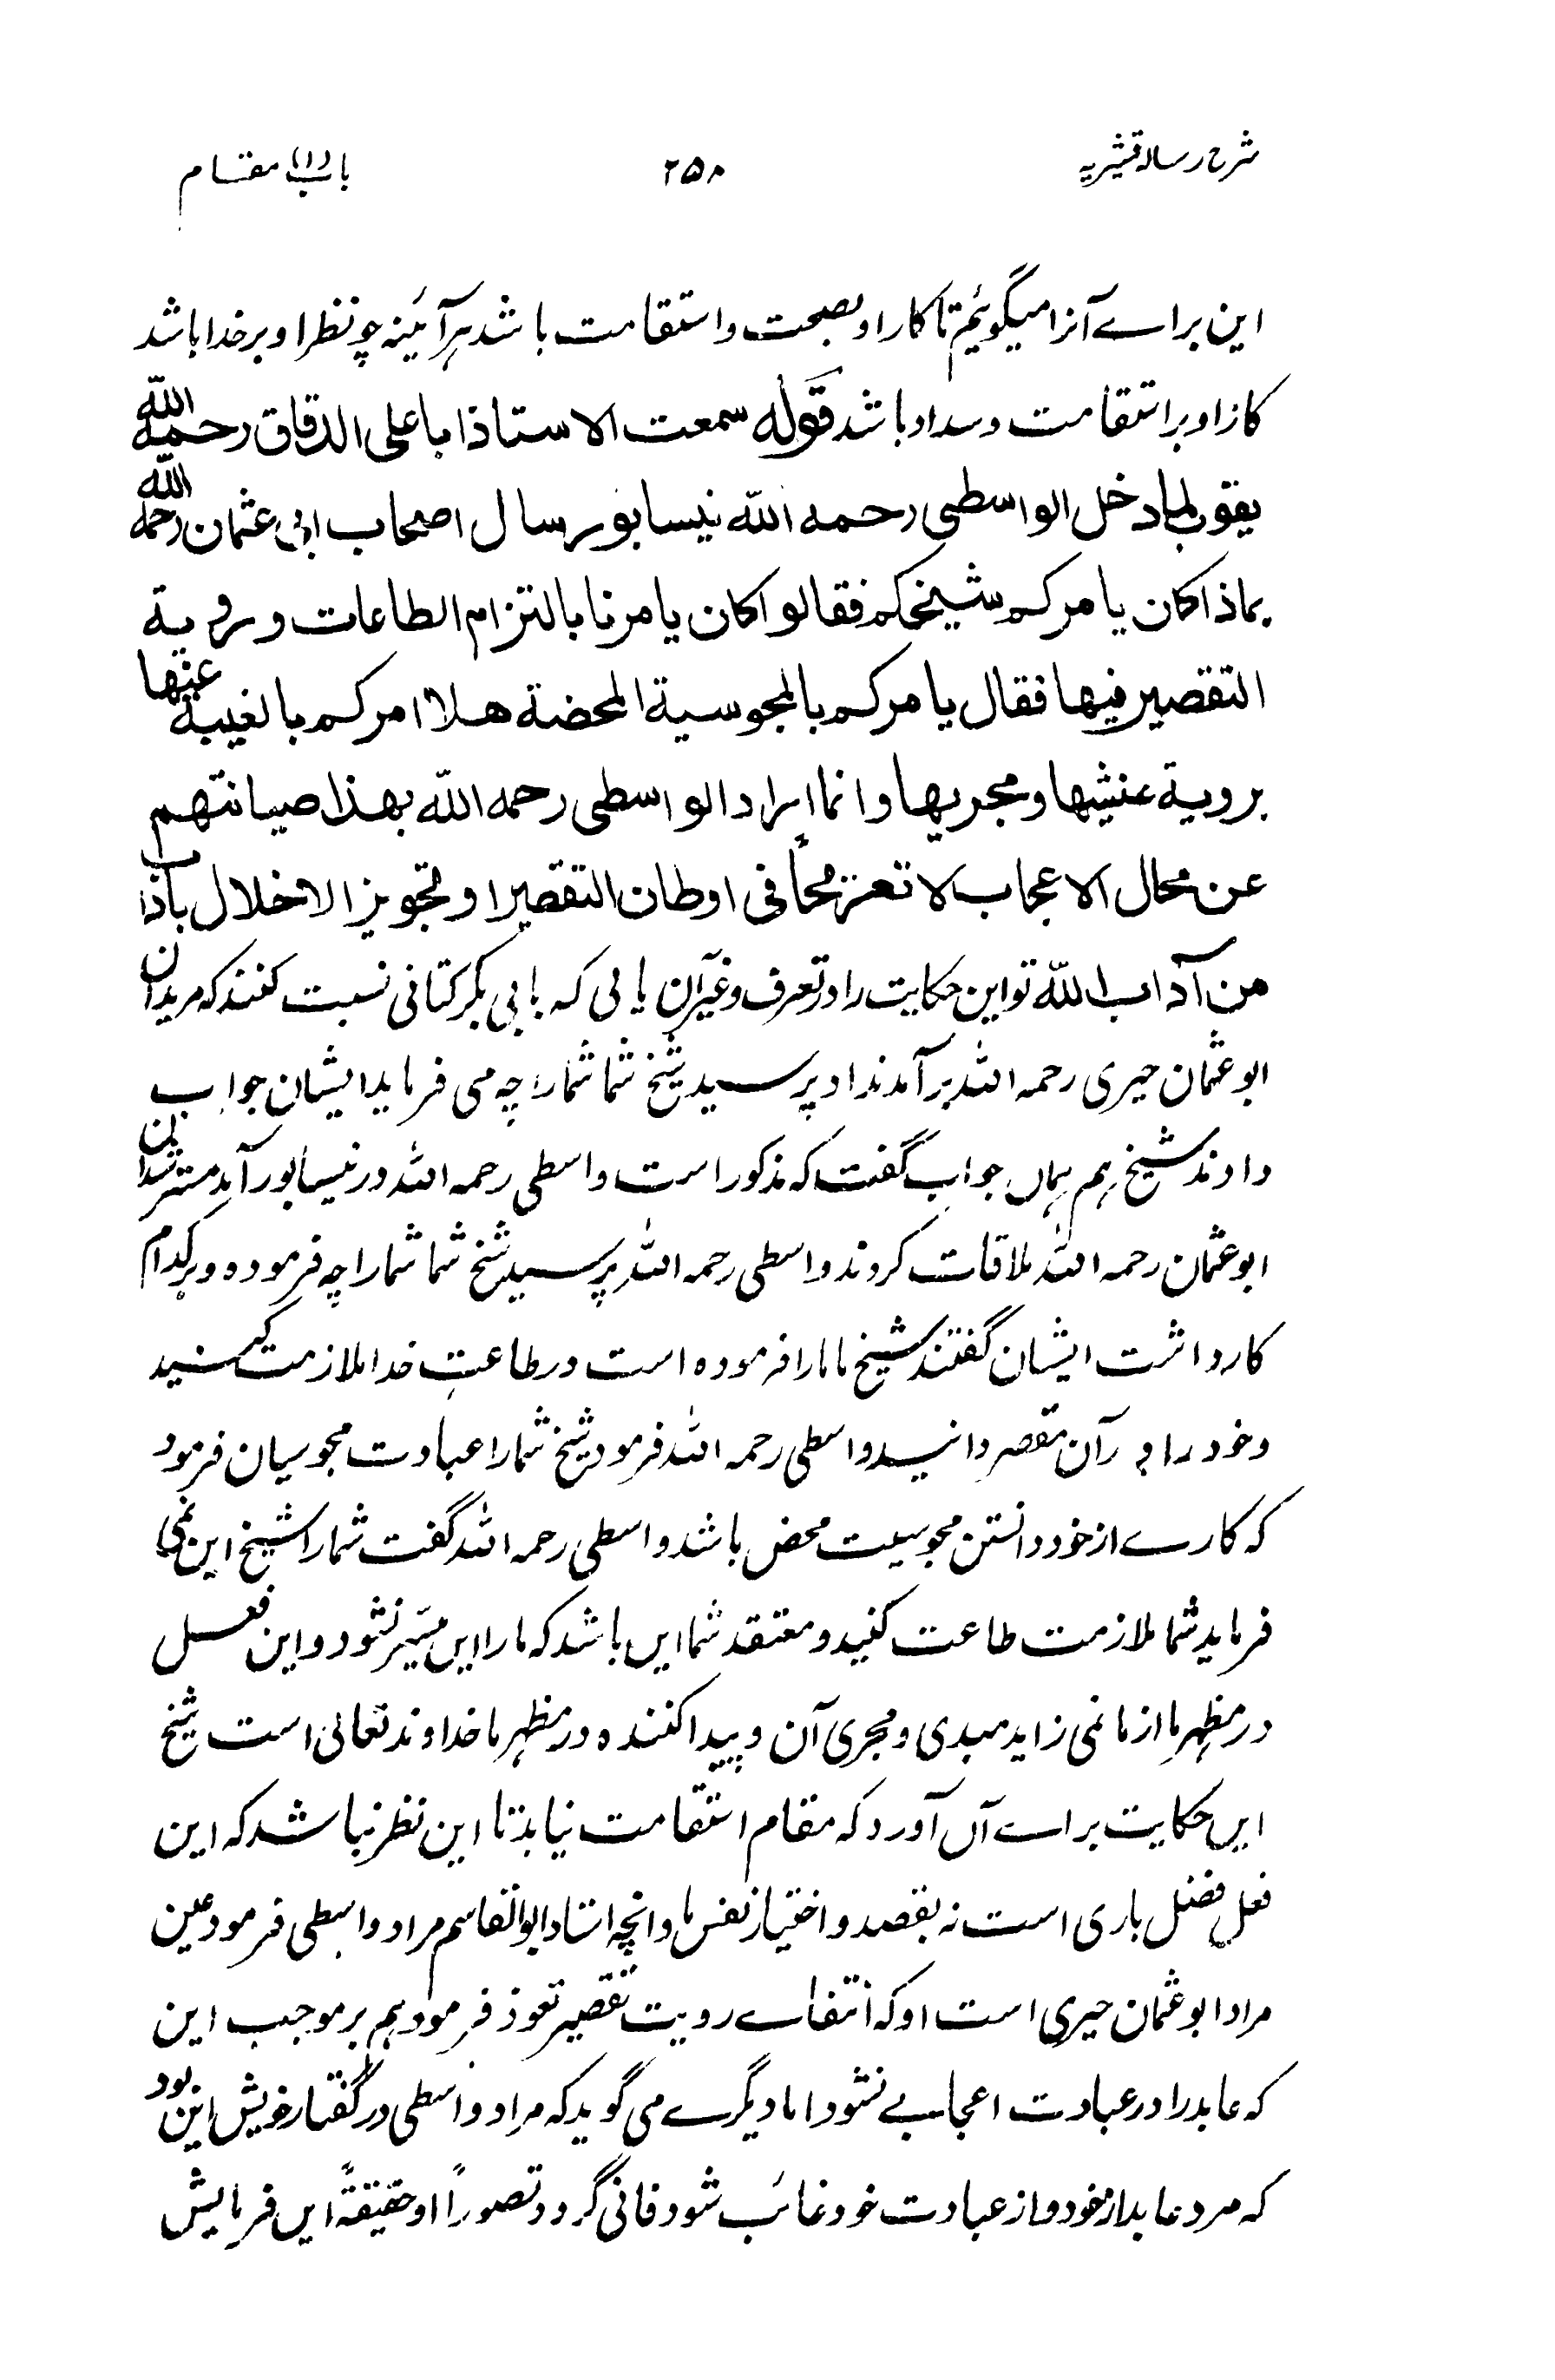 شرح رسالہ قشیریہ
۲۵۸
باب (۱) مقام
این براے آنرا میگوئیم تا کار او بصحت و استقامت باشد ہرآئینہ چو نظر او بر خدا باشد
کار او بر استقامت و سداد باشد قوله سمعت الاستاذ ابا علی الدقاق رحمه الله
یقول لما دخل الواسطی رحمه الله نیسابور سال اصحاب ابی عثمان رحمه الله
بماذا کان یامرکم شیخکم فقالوا کان یامرنا بالتزام الطاعات و رویة
التقصیر فیها فقال یامرکم بالمجوسیة المحضة هلا امرکم بالغیبة عنها
برویة منشیها و مجریها و انما اراد الواسطی رحمه الله بهذا صیانتهم
عن محال الاعجاب لا تعریجا فی اوطان التقصیر او تجویز الاخلال باداب
من آداب الله تو این حکایت را در تعرف و غیر آن یابی کہ بابی بکر کتانی نسبت کنند کہ مریدان
ابو عثمان حیری رحمہ اللہ برآمدند او پرسید شیخ شما شمارا چہ می فرماید ایشان جواب
دادند شیخ ہم ہماں جواب گفت کہ مذکور است واسطی رحمہ اللہ در نیسابور آمد مسترشدان
ابو عثمان رحمہ اللہ ملاقات کردند واسطی رحمہ اللہ پرسید شیخ شما شمارا چہ فرمودہ و بر کدام
کار داشت ایشان گفتند شیخ ما مارا فرمودہ است در طاعت خدا ملازمت کنید
و خود را در آن مقصر دانید واسطی رحمہ اللہ فرمود شیخ شمارا عبادت مجوسیان فرمود
کہ کارے از خود دانستن مجوسیت محض باشد واسطی رحمہ اللہ گفت شمارا شیخ این نمی
فرماید شما ملازمت طاعت کنید و معتقد شما ایں باشد کہ مارا ایں میسّر نشود و این فعل
در مظہر ما از ما نمی زاید مبدی و مجری آن و پیدا کنندہ در مظہر ما خداوند تعالیٰ است شیخ
ایں حکایت براے آں آورد کہ مقام استقامت نیابد تا این نظر نباشد کہ این
فعل فضل باری است نہ بقصد و اختیار نفس ما و انچہ استاد ابو القاسم مراد واسطی فرمود عین
مراد ابو عثمان حیری است او کہ انتفاے رویت تقصیر تعوذ فرمود ہم بر موجب این
کہ عابد را در عبادت اعجابے نشود اما دیگرے می گوید کہ مراد واسطی در گفتار خویش این بود
کہ مرد عابد از خود و از عبادت خود غائب شود فانی گردد تصوراً او حقیقةً ایں فرمایش